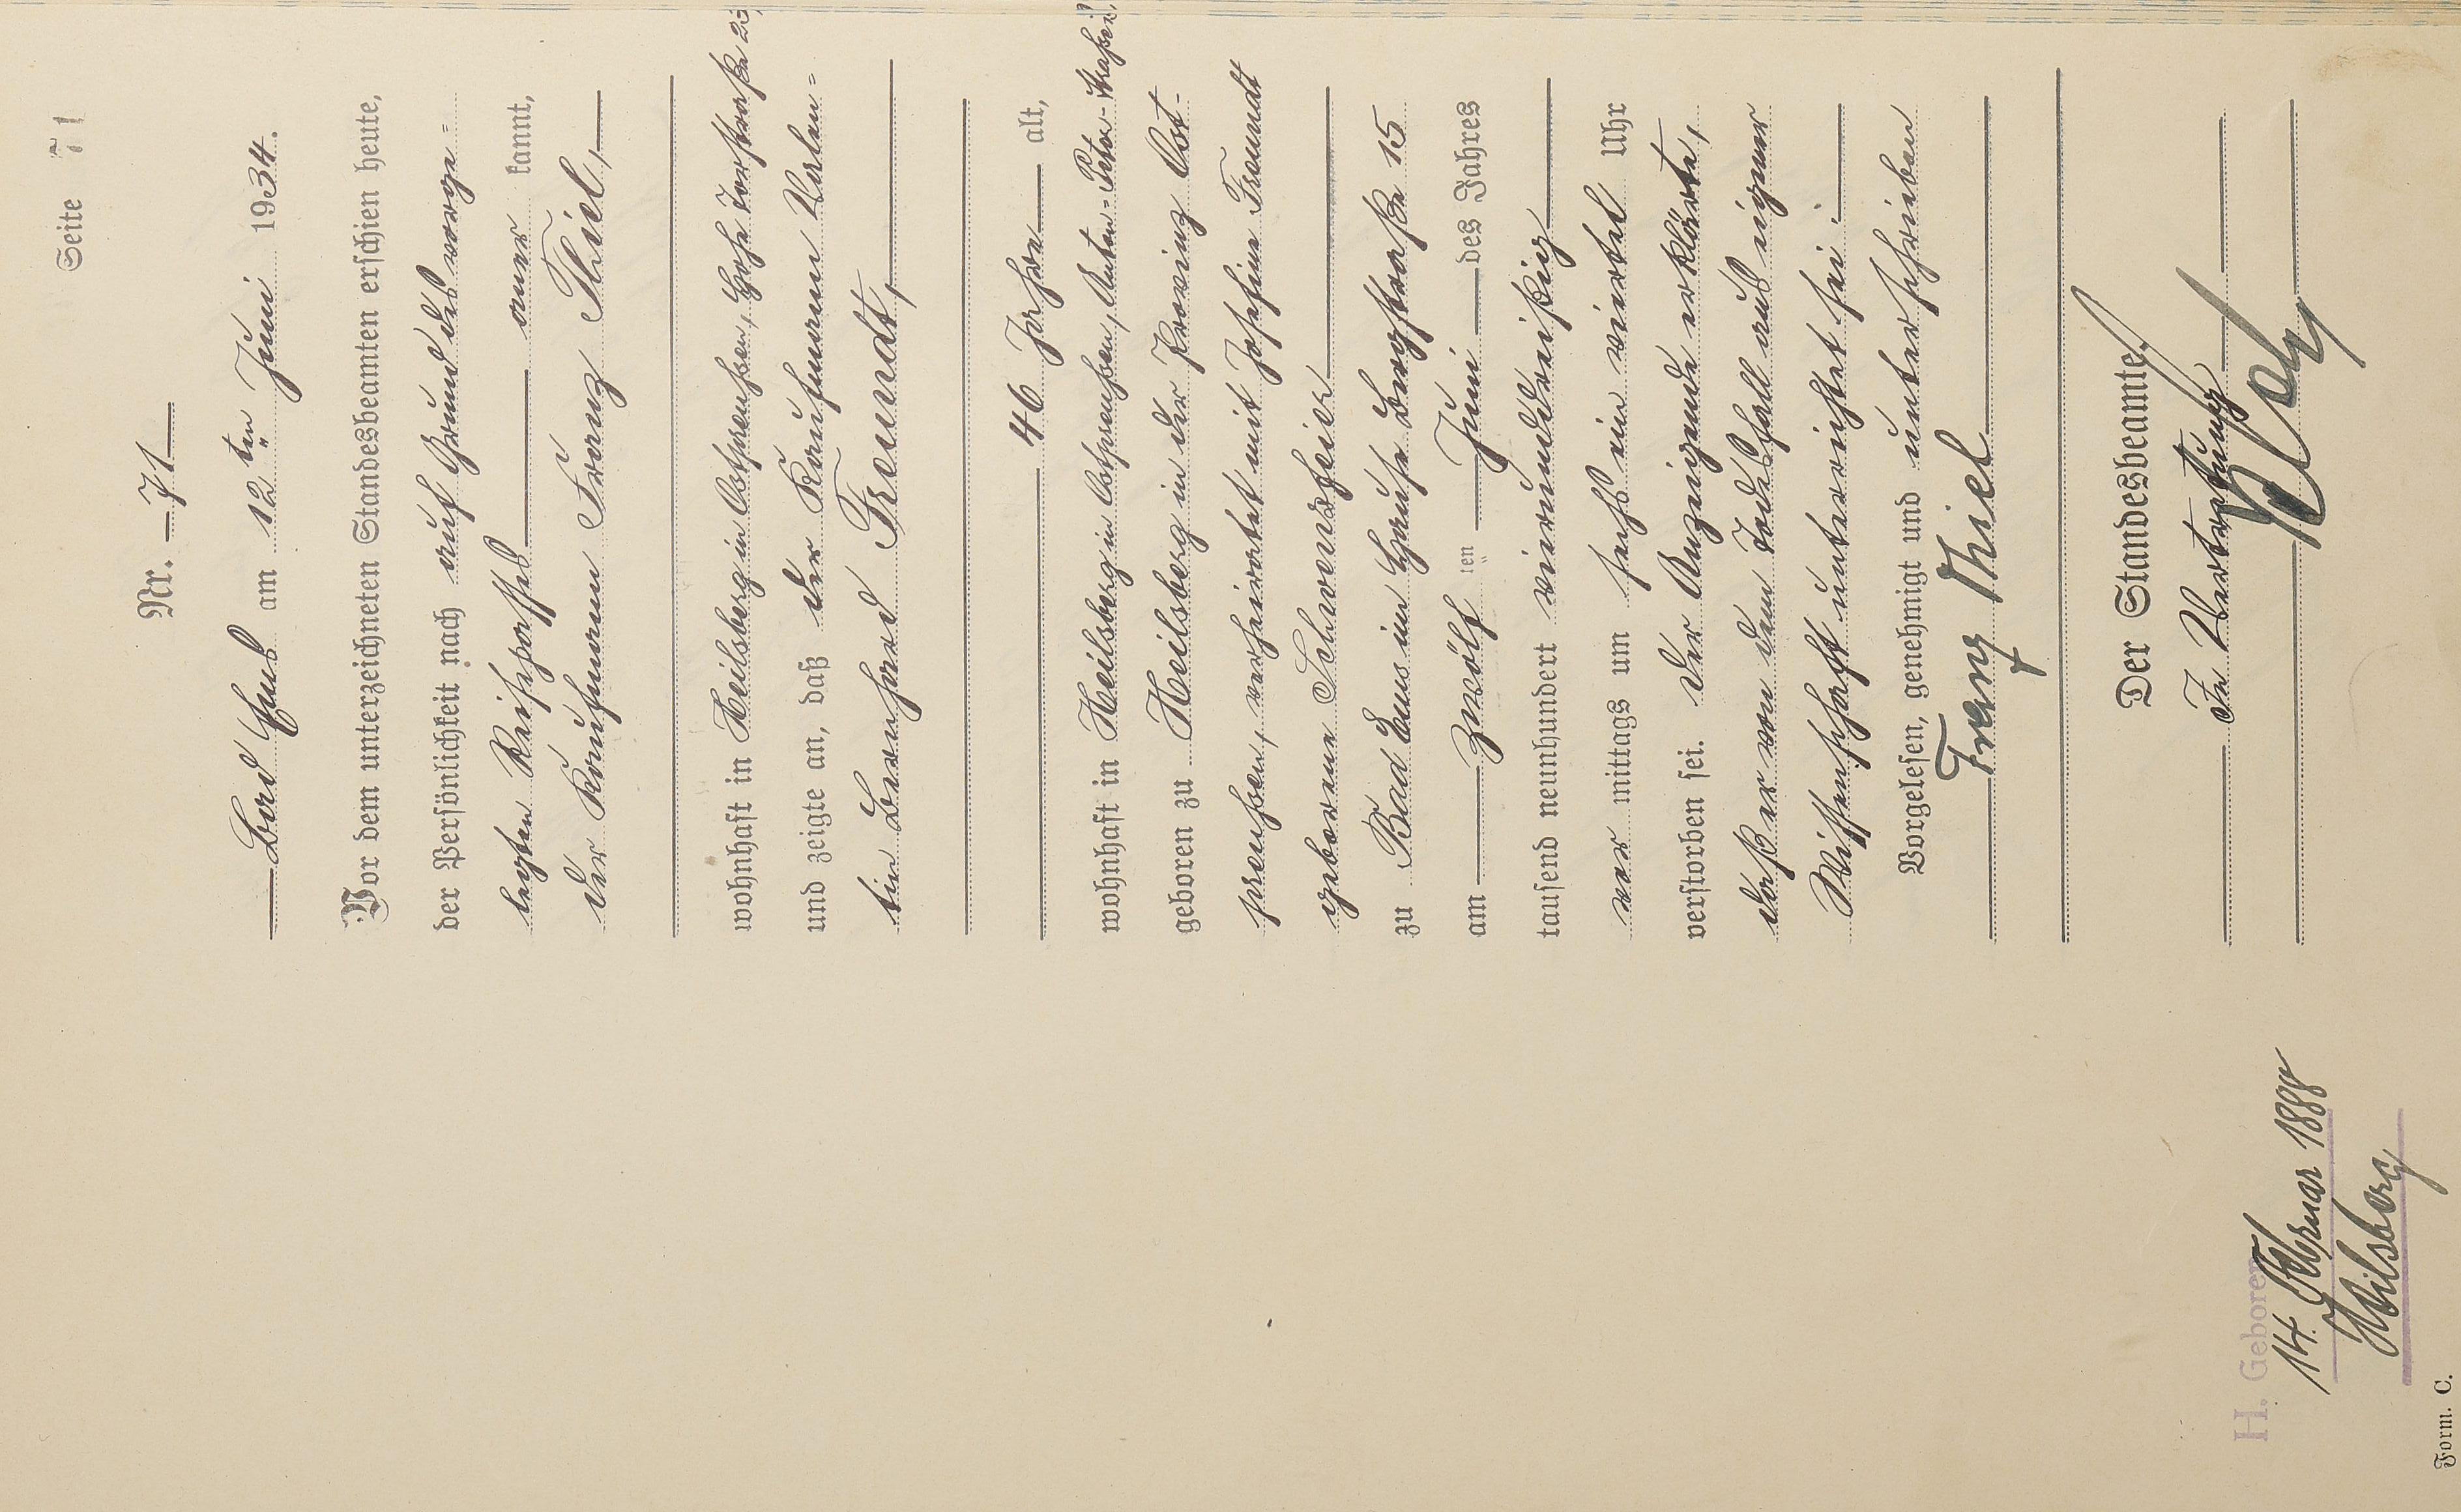 Seite 71
Nr. 71
Bad Ems am 12ten Juni 1934.
Vor dem unterzeichneten Standesbeamten erschien heute,
der Persönlichkeit nach auf Grund des vorge=
legten Reisepasses anerkannt,
der Kaufmann Franz Thiel,
wohnhaft in Heilsberg in Ostpreußen, Hohe Torstraße 23,
und zeigte an, daß der Kaufmann Valen=
tin Bernhard Freundt,
46 Jahre alt,
wohnhaft in Heilsberg in Ostpreußen,
geboren zu Heilsberg in der Provinz Ost-
preußen, verheiratet mit Josefine Freundt
geborene
zu Bad Ems im Hause Bergstraße 15
am zwölften Juni des Jahres
tausend neunhundert vierunddreißig
vormittags um sechs ein viertel Uhr
verstorben sei. Der Anzeigende erklärte,
daß er von dem Todesfall aus eigener
Wissenschaft unterrichtet sei.
Vorgelesen, genehmigt und unterschrieben
Franz Thiel
Der Standesbeamte.
In Vertretung
H. Geboren
14. Februar 1888
Heilsberg
Form. C.